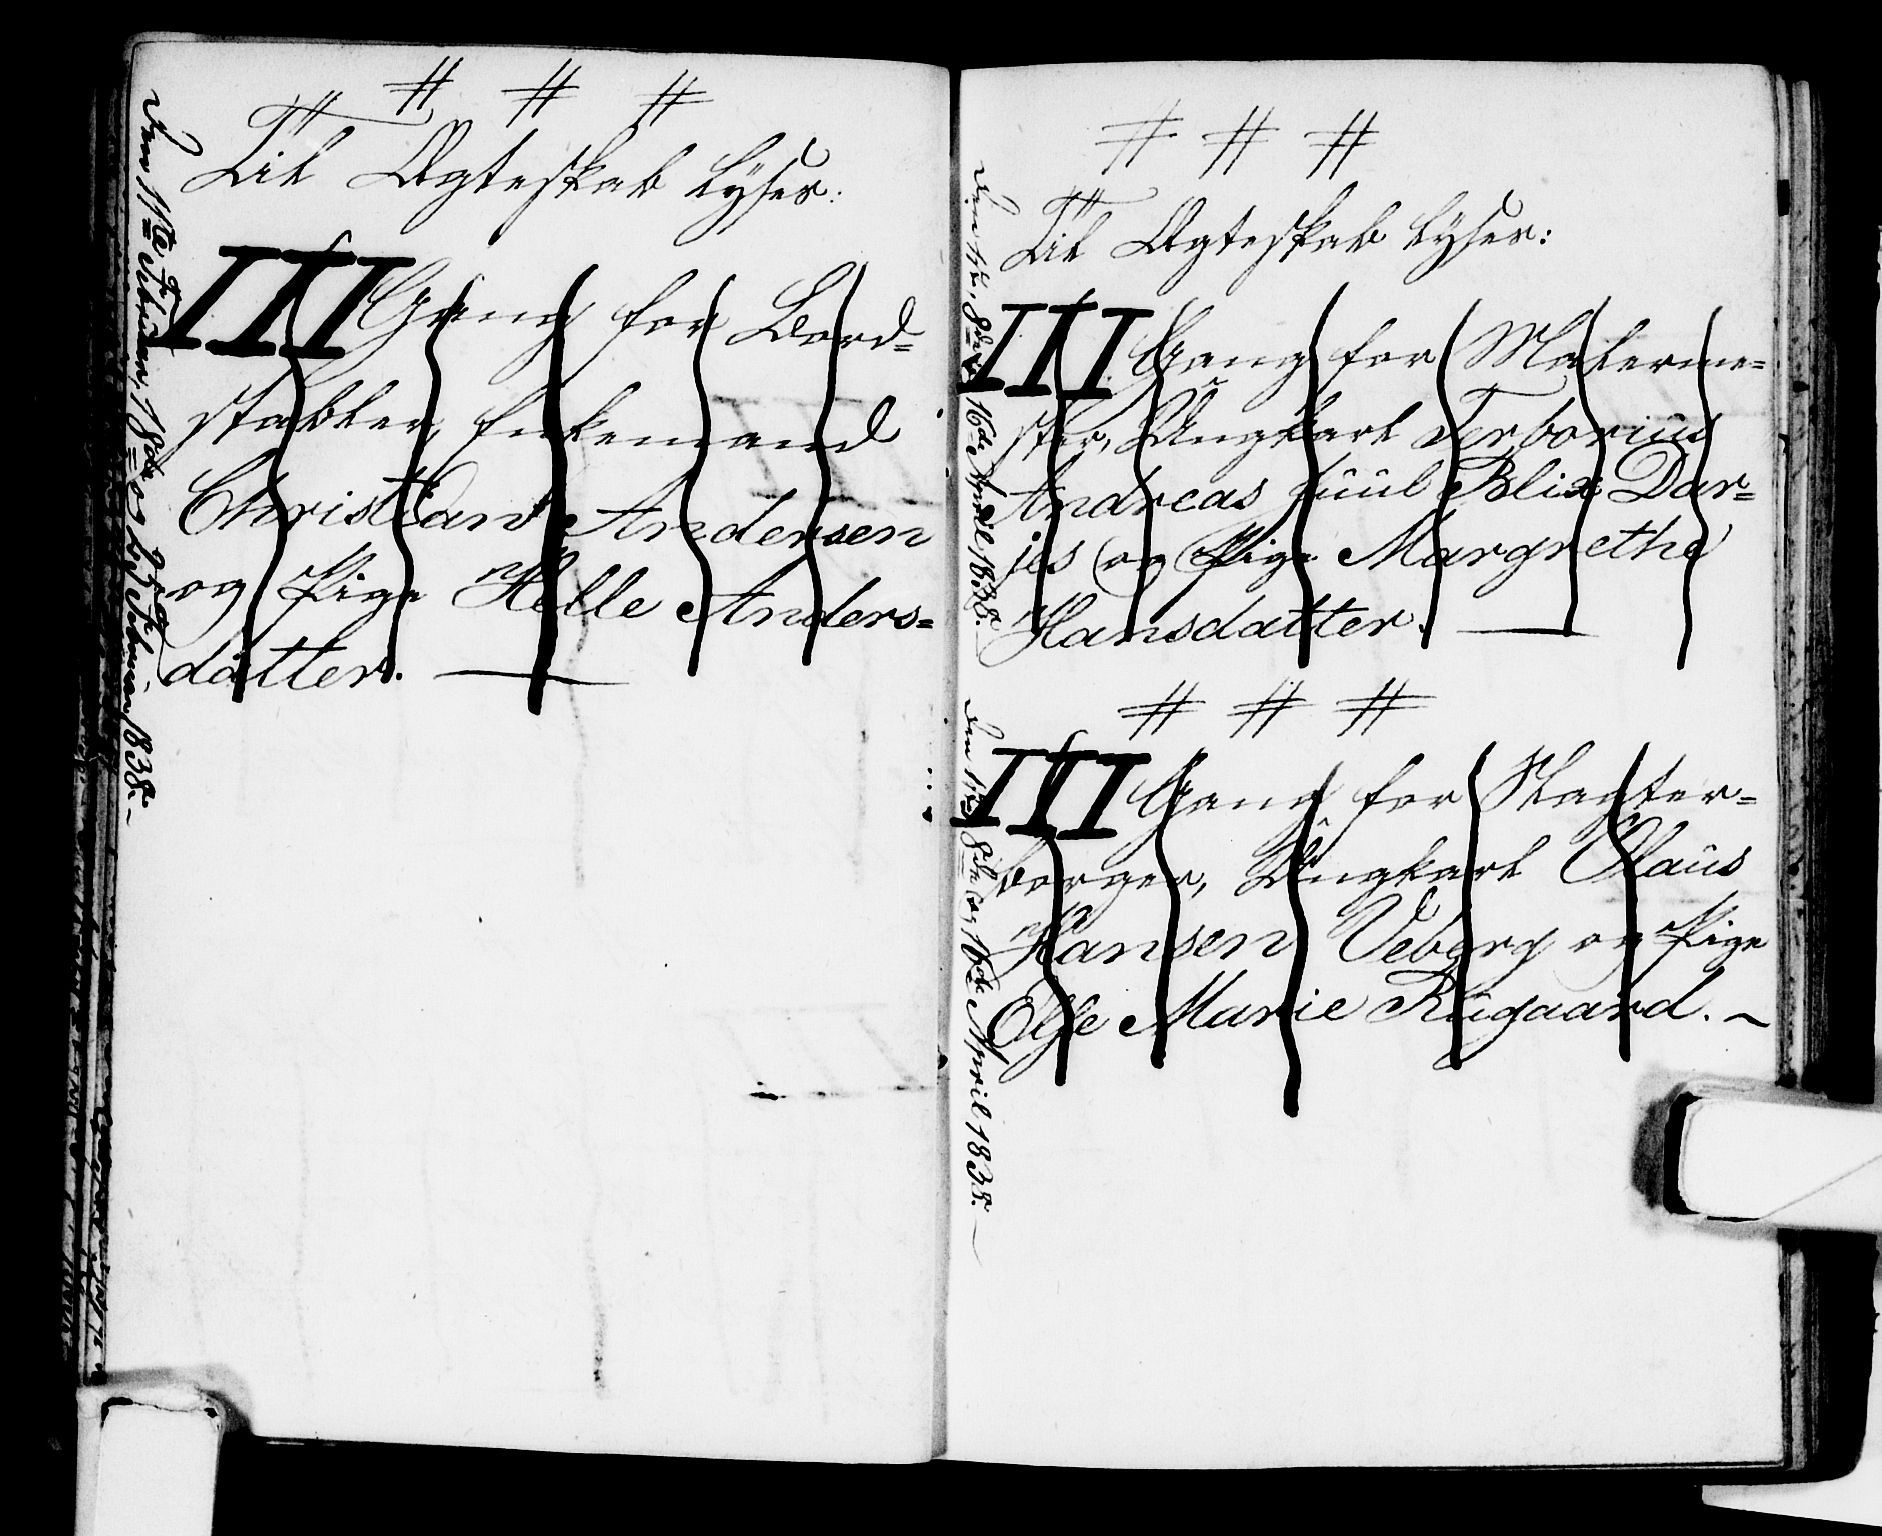 # # #
Til Ægteskab lyses:
III Gang for Bord-
stabler, Enkemand
Christian Andersen
og Pige Helle Anders=
datter. —
Den 11te Februar, 18de og 25de Februar 1838. –
# # #
Til Ægteskab lyses:
III Gang for Malerme=
ster, Ungkarl Terborius
Andreas Juul Blix Dor=
jes og Pige Margrethe
Hansdatter. —
Den 1ste, 8de og 16de April 1838. –
# # #
III Gang for Slagter=
borger, Ungkarl Olaus
Hansen Veberg og Pige
Else Marie Rügaard. –
Den 1ste, 8de og 16de April 1838. –